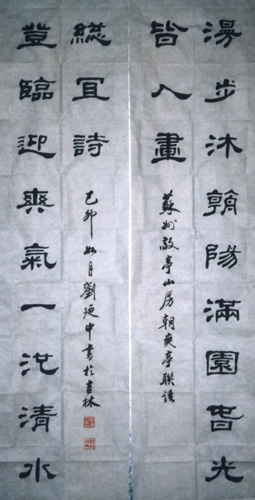 漫步沐朝陽滿園春光
皆入畫
蘇州敬亭山房朝爽亭聯語
登臨迎爽氣一池清水
總宜詩
己卯如月劉廼中書於吉林